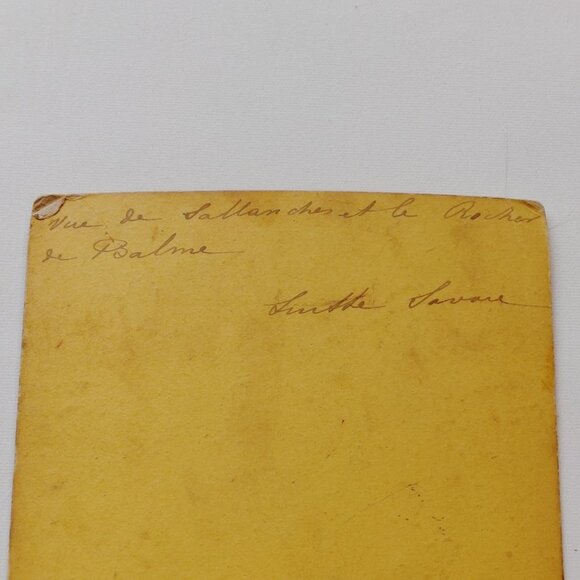 Vue de Sallanches et le Rocher
de Balme
Savoie